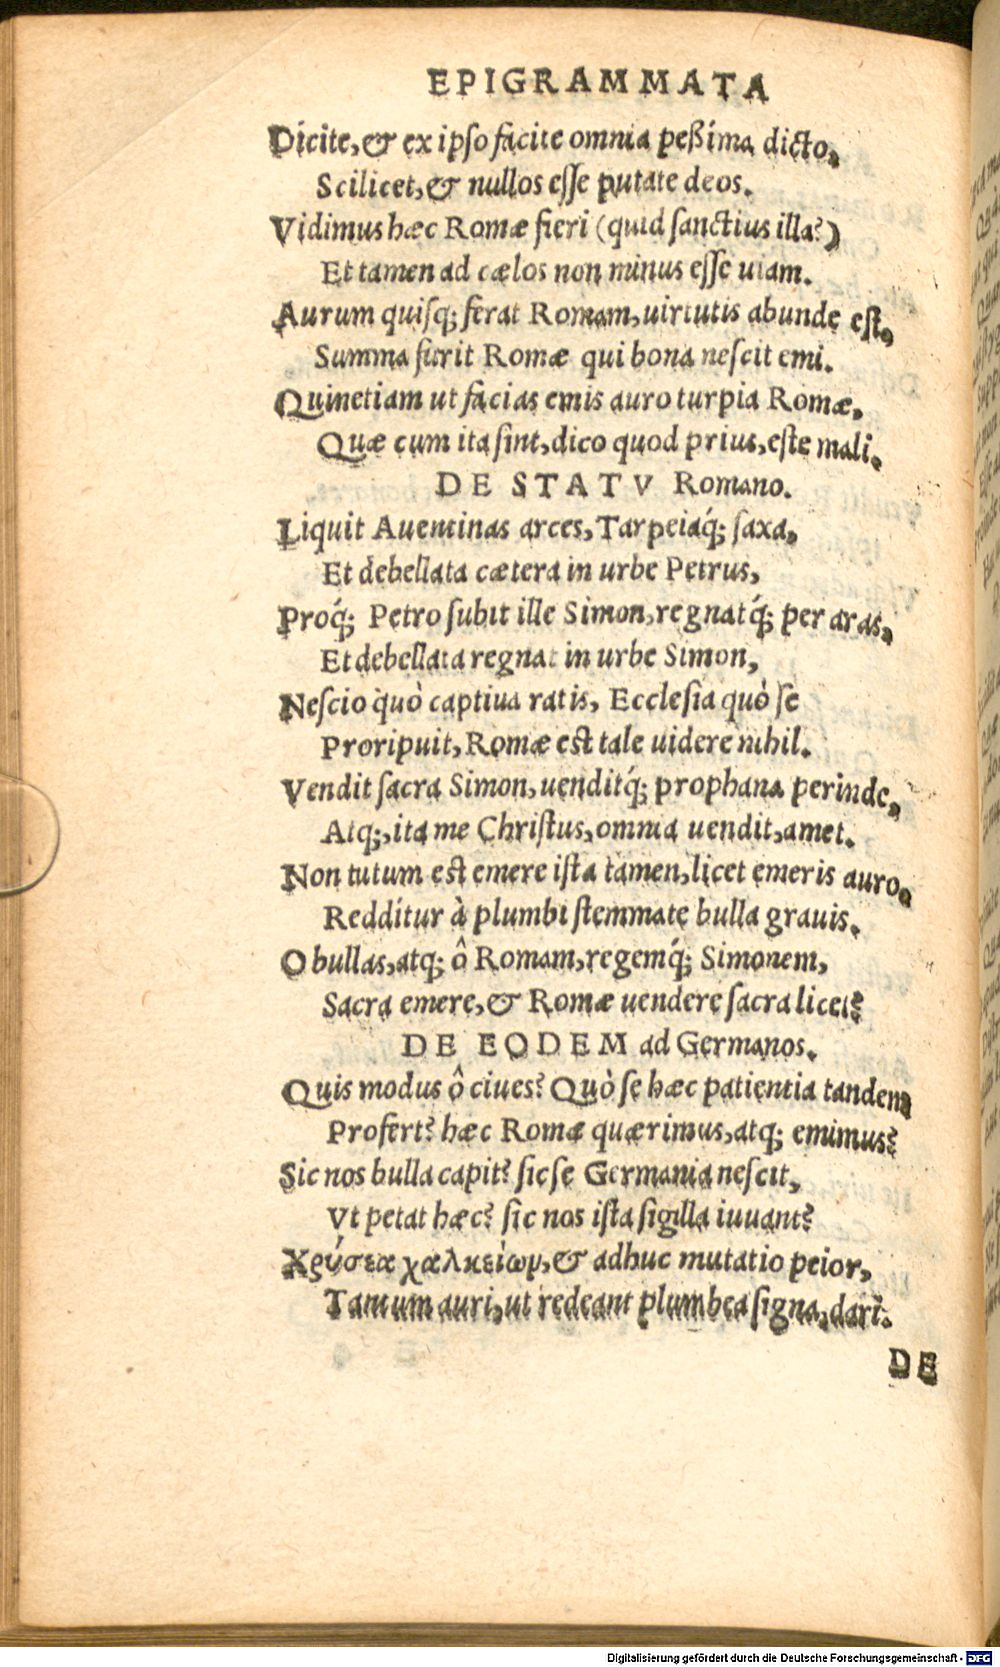 EPIGRAMMATA
Dicite, & ex ipso facite omnia peßima dicto,
Scilicet, & nullos esse putate deos.
Vidimus hæc Romæ fieri (quid sanctius illa?)
Et tamen ad cælos non minus esse uiam.
Aurum quisq; ferat Romam, uirtutis abunde est,
Summa furit Romæ qui bona nescit emi.
Quinetiam ut facias emis auro turpia Romæ,
Quæ cum ita sint, dico quod prius, este mali.
DE STATV Romano.
Liquit Auentinas arces, Tarpeiaq́; saxa,
Et debellata cætera in urbe Petrus,
Proq́; Petro subit ille Simon, regnatq́; per aras,
Et debellata regnat in urbe Simon,
Nescio quò captiua ratis, Ecclesia quò se
Proripuit, Romæ est tale uidere nihil.
Vendit sacra Simon, uenditq́; prophana perinde,
Atq;, ita me Christus, omnia uendit, amet.
Non tutum est emere ista tamen, licet emeris auro,
Redditur à plumbi stemmate bulla grauis.
O bullas, atq; ô Romam, regemq́; Simonem,
Sacra emere, & Romæ uendere sacra licet?
DE EODEM ad Germanos.
Quis modus ô ciues? Quò se hæc patientia tandem
Profert? hæc Romæ quærimus, atq; emimus?
Sic nos bulla capit? sic se Germania nescit,
Vt petat hæc? sic nos ista sigilla iuuant?
Χρύσεα χαλκείων, & adhuc mutatio peior,
Tantum auri, ut redeant plumbea signa, dari.
DE
Digitalisierung gefördert durch die Deutsche Forschungsgemeinschaft - DFG